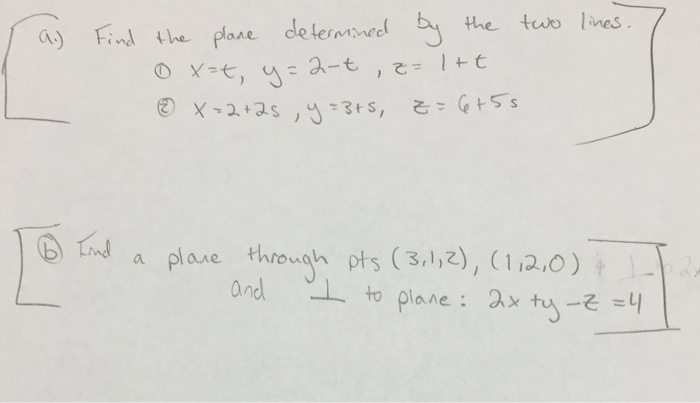 a.) Find the plane determined by the two lines.
① x=t, y=2-t, z=1+t
② x=2+2s, y=3+s, z=6+5s
ⓑ Find a plane through pts (3,1,2), (1,2,0)
and ⊥ to plane: 2x+y-z=4